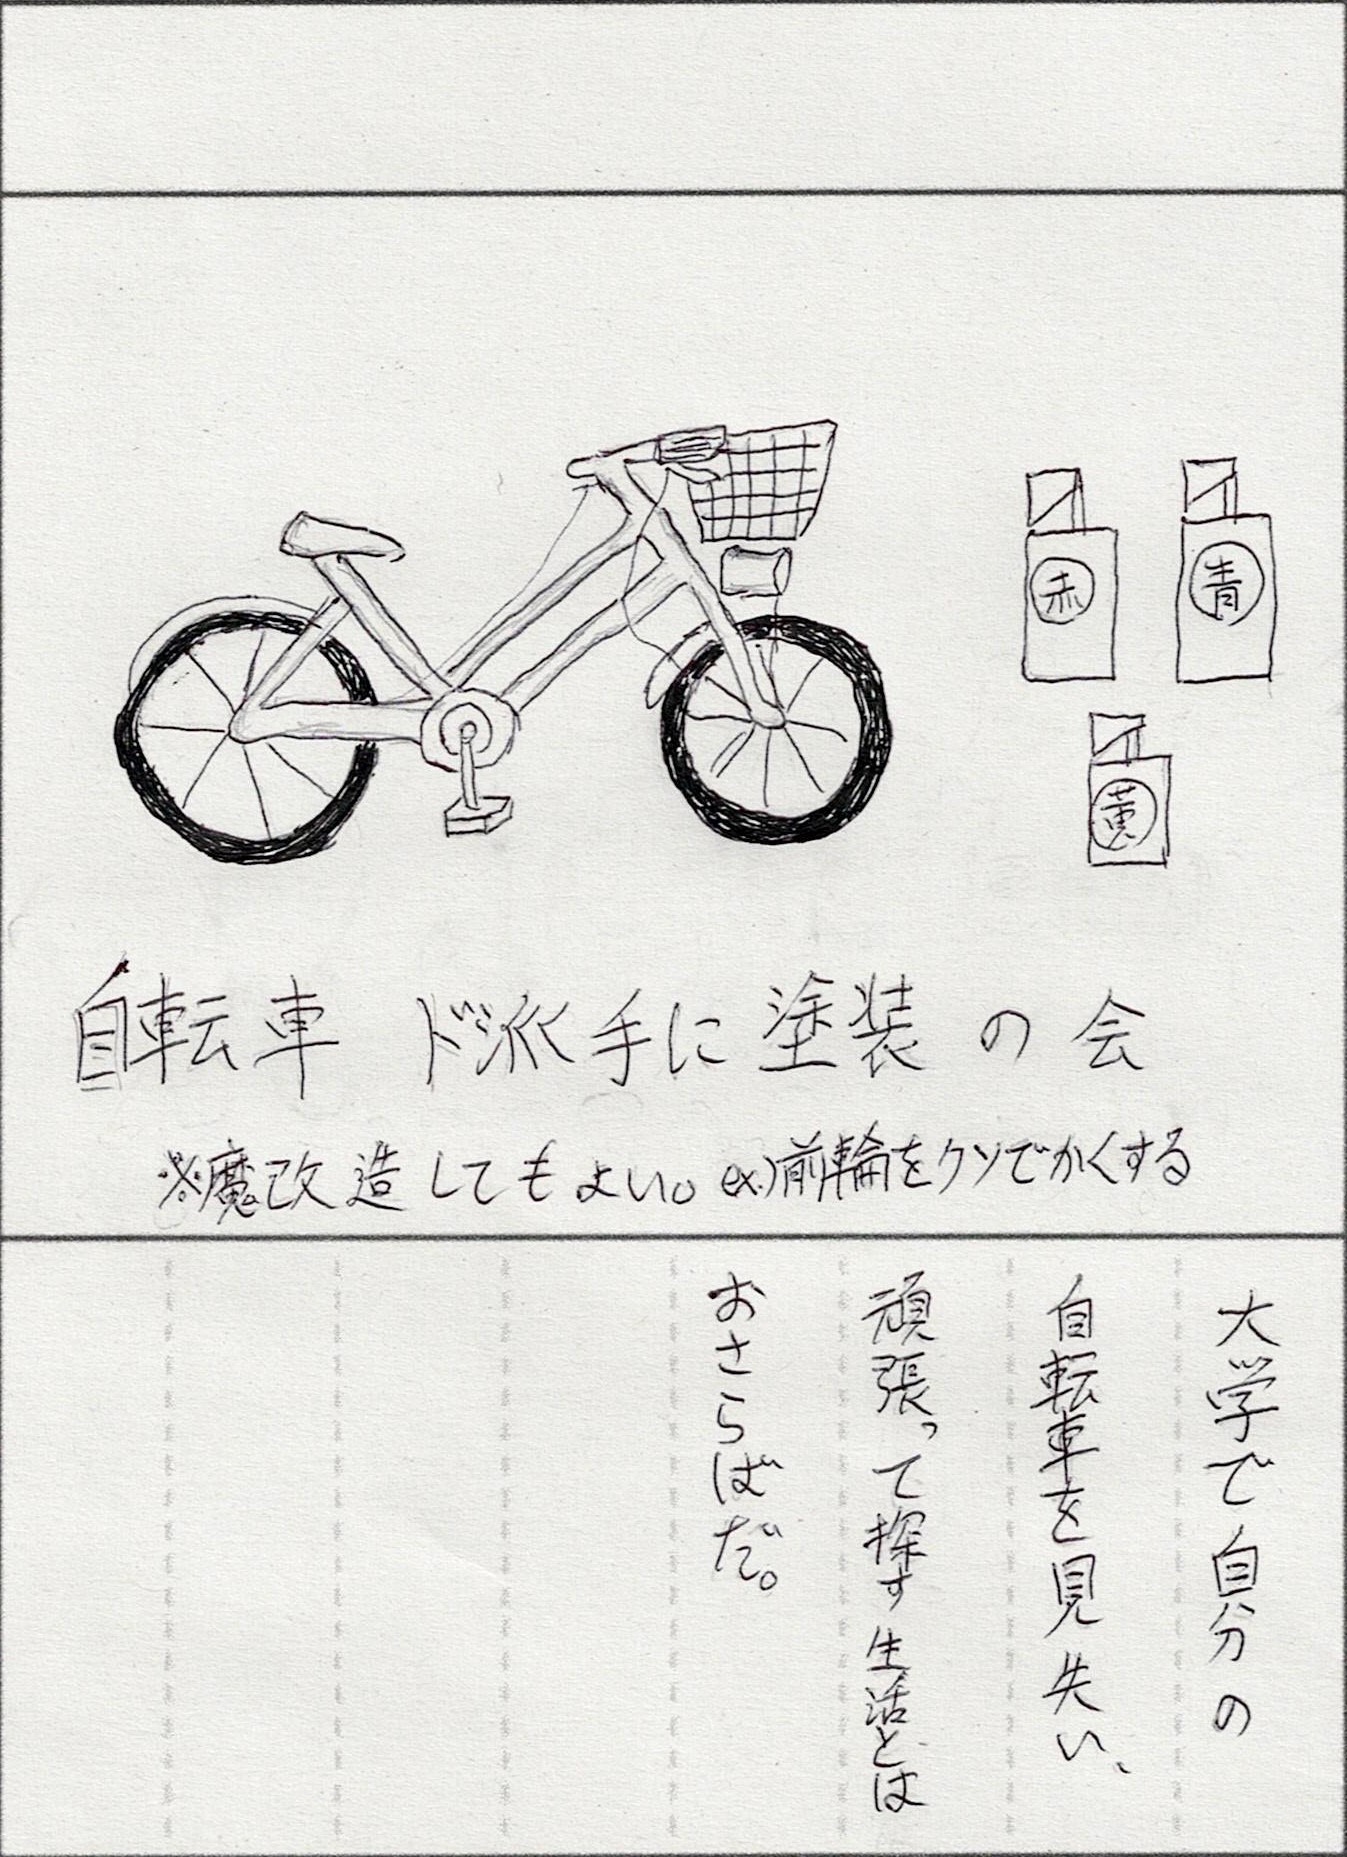 赤
青
黄
自転車 ド派手に塗装の会
※魔改造してもよい。ex.)前輪をクソでかくする
大学で自分の
自転車を見失い、
頑張って探す生活とは
おさらばだ。